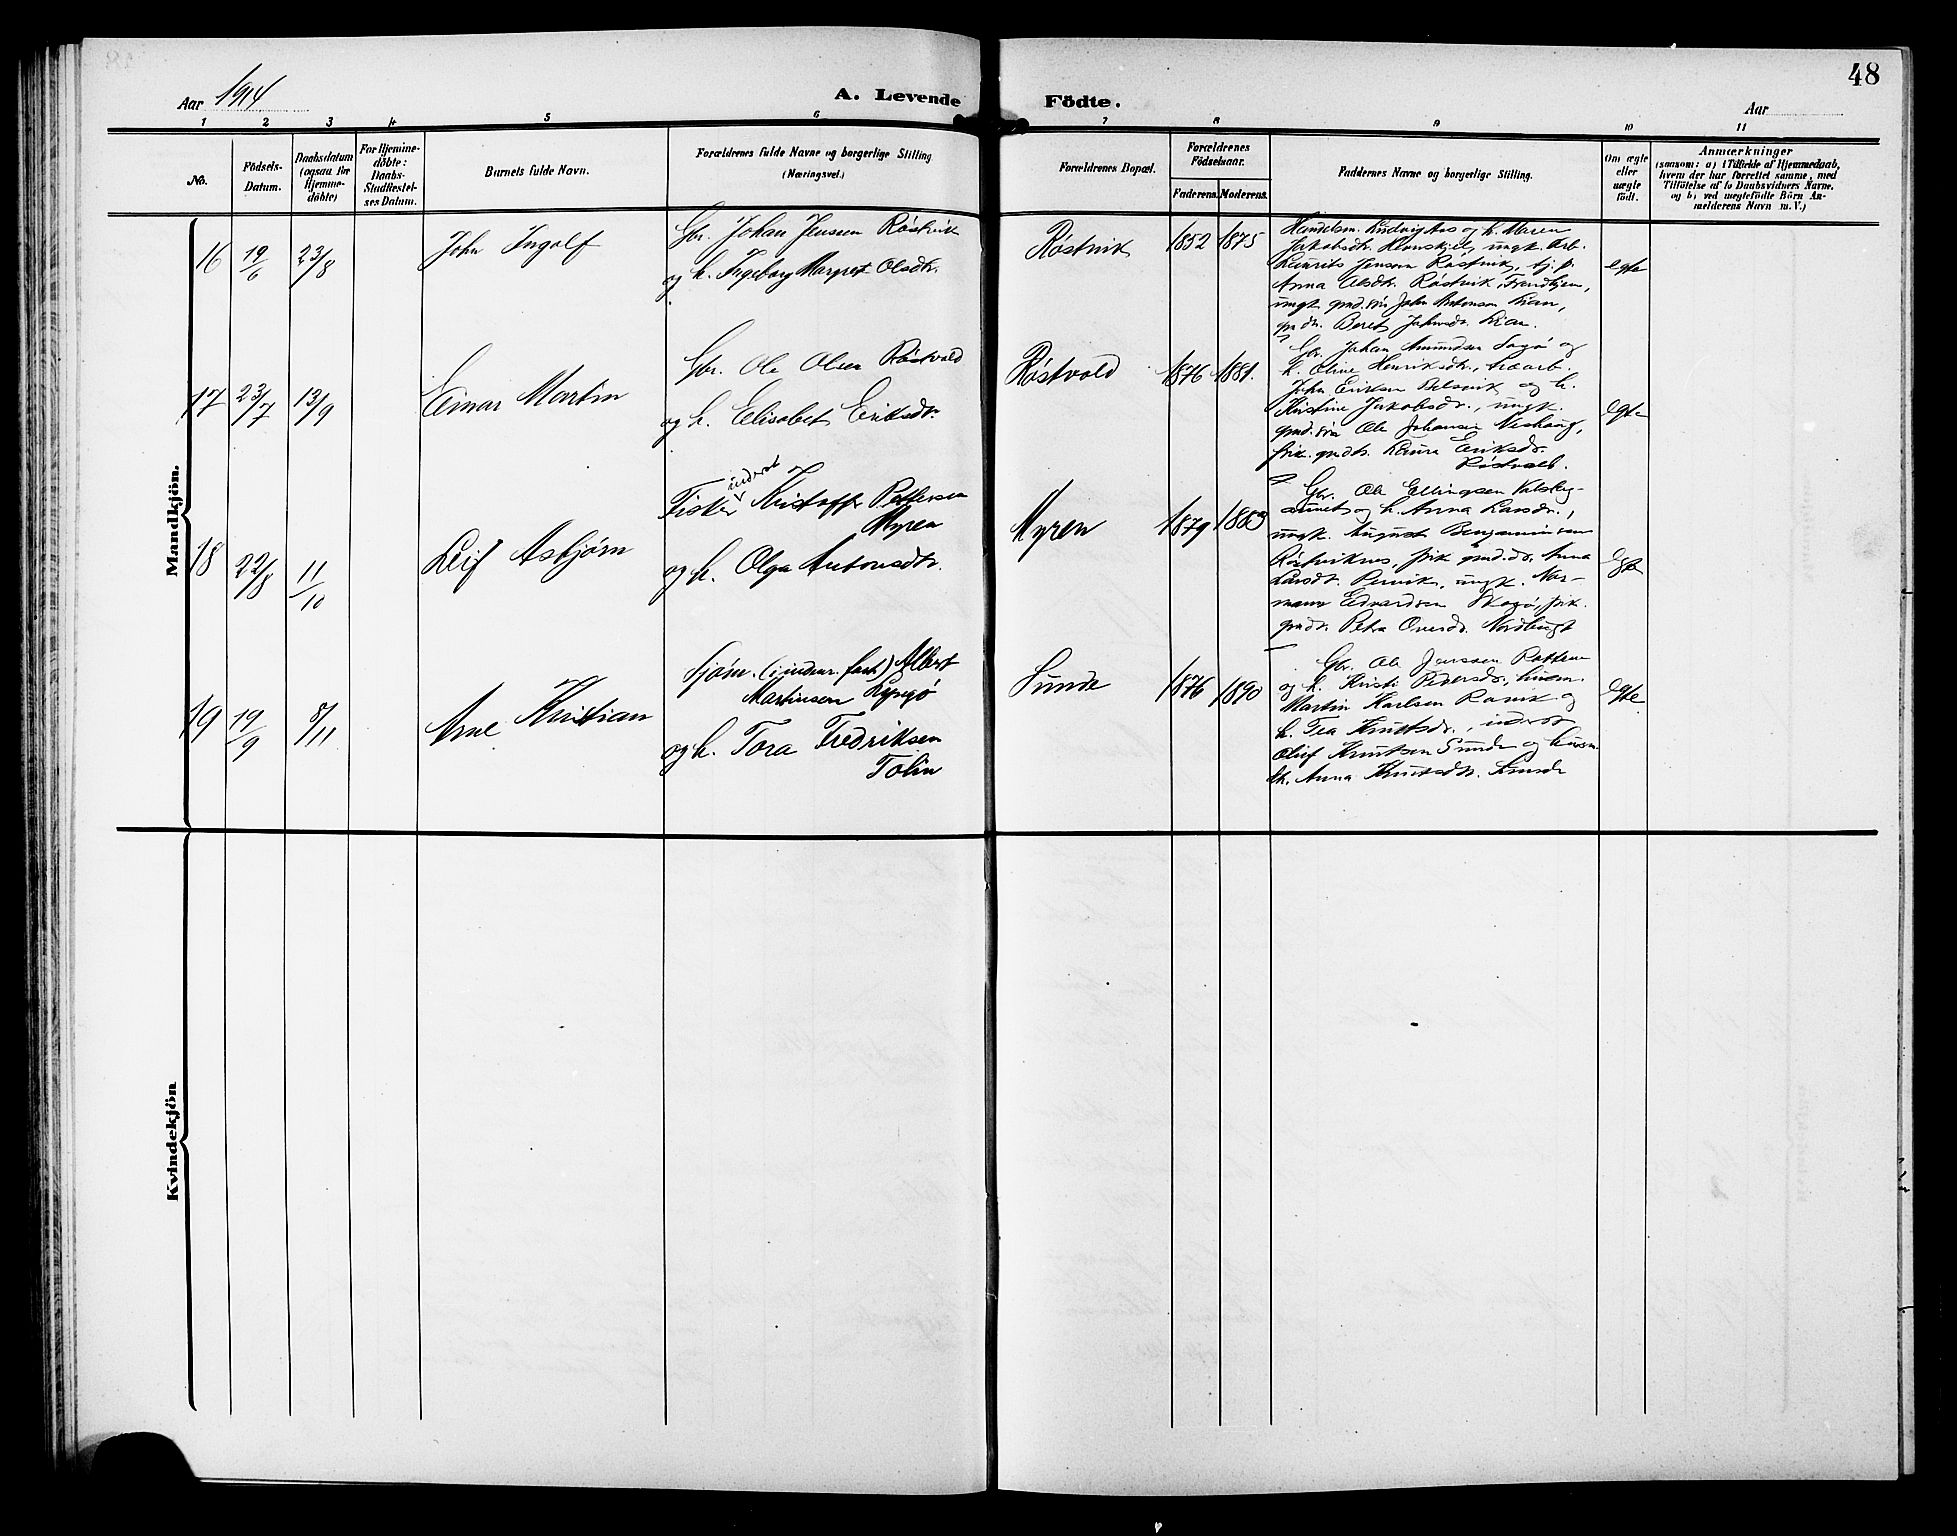 48
Aar 1914
A. Levende Födte.
Aar
1 2 3 4 5 6 7 8 9 10 11
No.
Födsels-
Datum.
Daabsdatum
(ogsaa for
Hjemme-
döbte)
For Hjemme-
döbte:
Daabs-
Stadfæstel-
ses Datum.
Barnets fulde Navn.
Forældrenes fulde Navne og borgerlige Stilling
(Næringsvei.)
Forældrenes Bopæl.
Forældrenes
Födselsaar.
Faderens. Moderens.
Faddernes Navne og borgerlige Stilling.
Om ægte
eller
uægte
födt.
Anmærkninger
(saasom: a) i Tilfælde af Hjemmedaab,
hvem der har forrettet samme, med
Tilföielse af to Daabsvidners Navne,
og b) ved uægtefödte Börn An-
melderens Navn m. V.)
Mandkjön.
16 19/6 23/8 John Ingolf
Gbr. Johan Jenssen Røstvik
og h. Ingeborg Margret Olsdtr.
Røstvik 1852 1875
Handelsm. Ludvig Aas og h. Maren
Jakobsdtr. Hevnskjel, ungk. arb.
Laurits Jensen Røstvik, tj. p.
Anna Olsdtr. Røstvik, Trondhjem,
ungk. gmd. søn John Antonsen Lian,
gmdtr. Beret Johnsdtr. Lian.
egte
17 23/7 13/9 Einar Martin
Gbr. Ole Olsen Røstvold
og h. Elisabet Eriksdtr.
Røstvold 1876 1881.
Gbr. Johan Amundsen Sagø og
h. Oline Henriksdtr., træarb.
John Eriksen Belsvik og h.
Kristine Jakobsdtr., ungk.
gmd. søn Ole Johansen Neshaug,
pik. gmdtr. Laura Eriksdtr.
egte
18 22/8 11/10 Leif Asbjørn
Fisker inderst Kristoffer Pettersen
Myren
og h. Olga Antonsdtr.
Myren 1879 1883
Gbr. Ole Ellingsen Valslag-
og h. Anna Larsdtr.,
ungk. August Benjaminsen
Røstviknes, pik. gmd.dtr. Anna
Larsdtr. ungk. Nor-
mann Edvardsen Skogø, pik.
gmdtr. Petra Ovesdtr. Nordbugt
egte
19 19/9 8/11 Arne Kristian
Sjøm. (i udenr. fart) Albert
Martinsen Lyngø
og h. Tora Fredriksen
Tolin
Sunde 1876 1890
Gbr. Ole Jenssen Rotten
og h. Kristi Pedersdtr., husm.
Martin Karlsen Ravik og
h. Tea Knutsdtr., inderst
Oluf Knutsen Sunde og husm.
Anna Knutsdtr. Sunde
egte
Kvindekjön